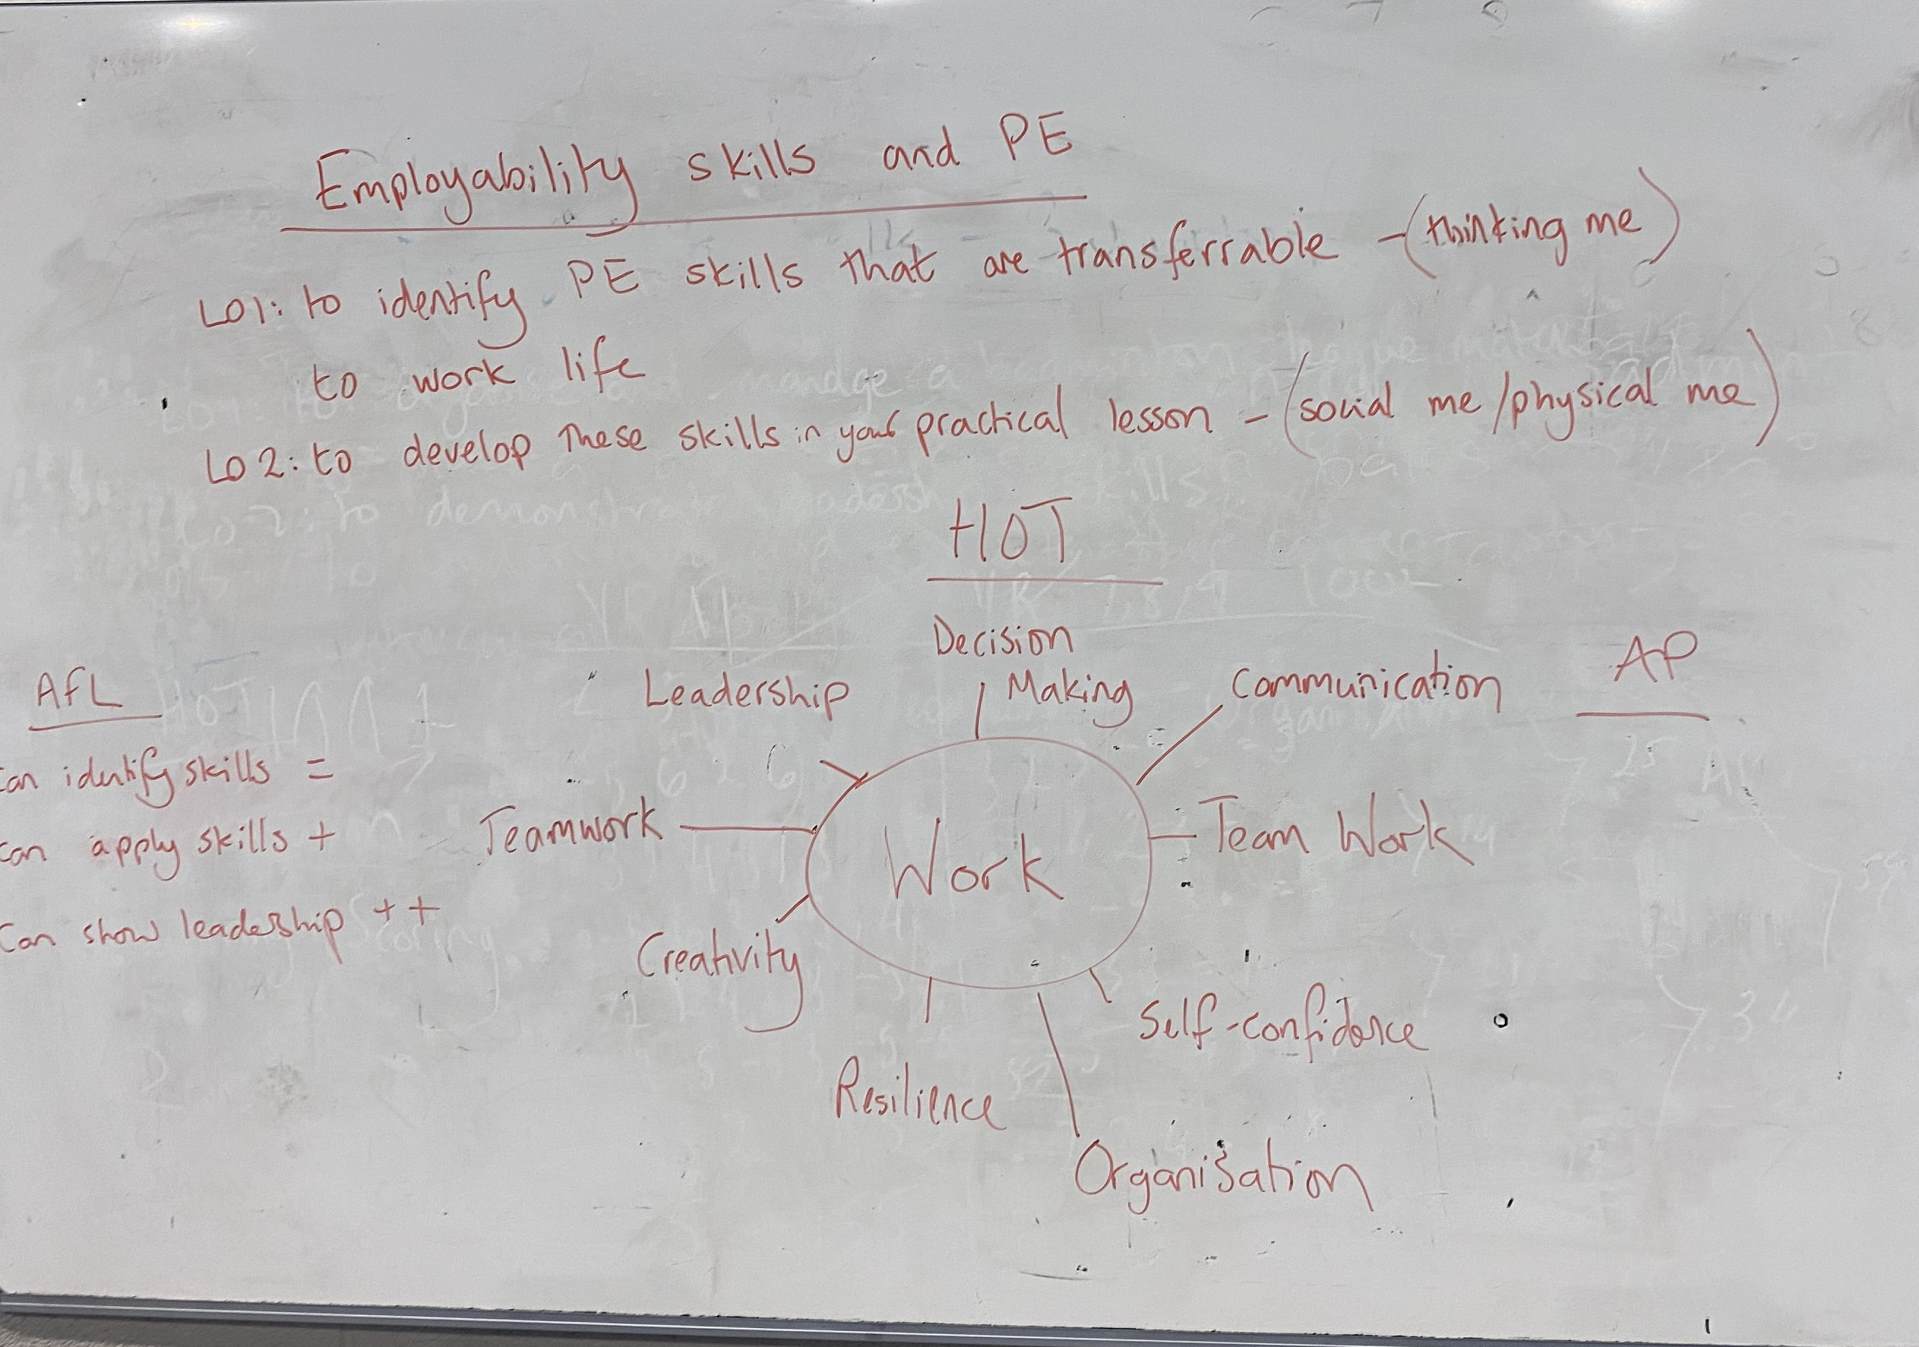 Employability skills and PE
LO1: to identify PE skills that are transferrable - (thinking me)
to work life
LO2: to develop these skills in your practical lesson - (social me/physical me)
HOT
AfL
can identify skills =
can apply skills +
can show leadership ++
Decision
Making
Leadership
Communication
AP
Teamwork
Work
Team Work
Creativity
Self-confidence
Resilience
Organisation